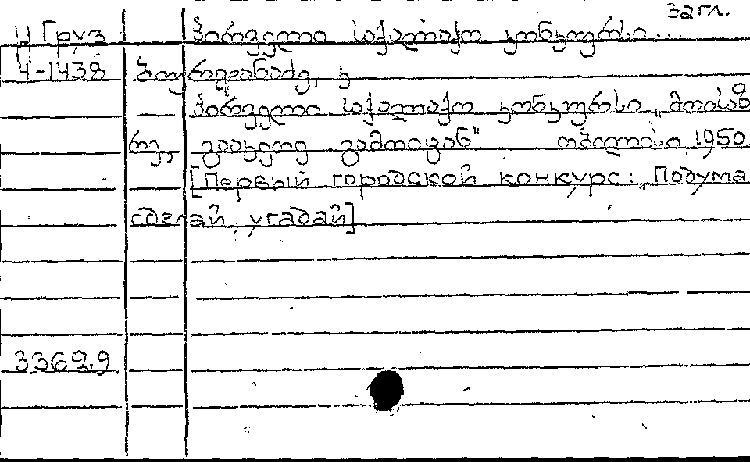 загл.
Н Груз პირველი საქალაქო კონკურსი...
4-1438 კ.
პირველი საქალაქო კონკურსი „მოისაზ
რე, გააკეთე გამოიცან" თბილისი 1950
[Первый городской конкурс: „Подума
сделай, угадай]
3369.9